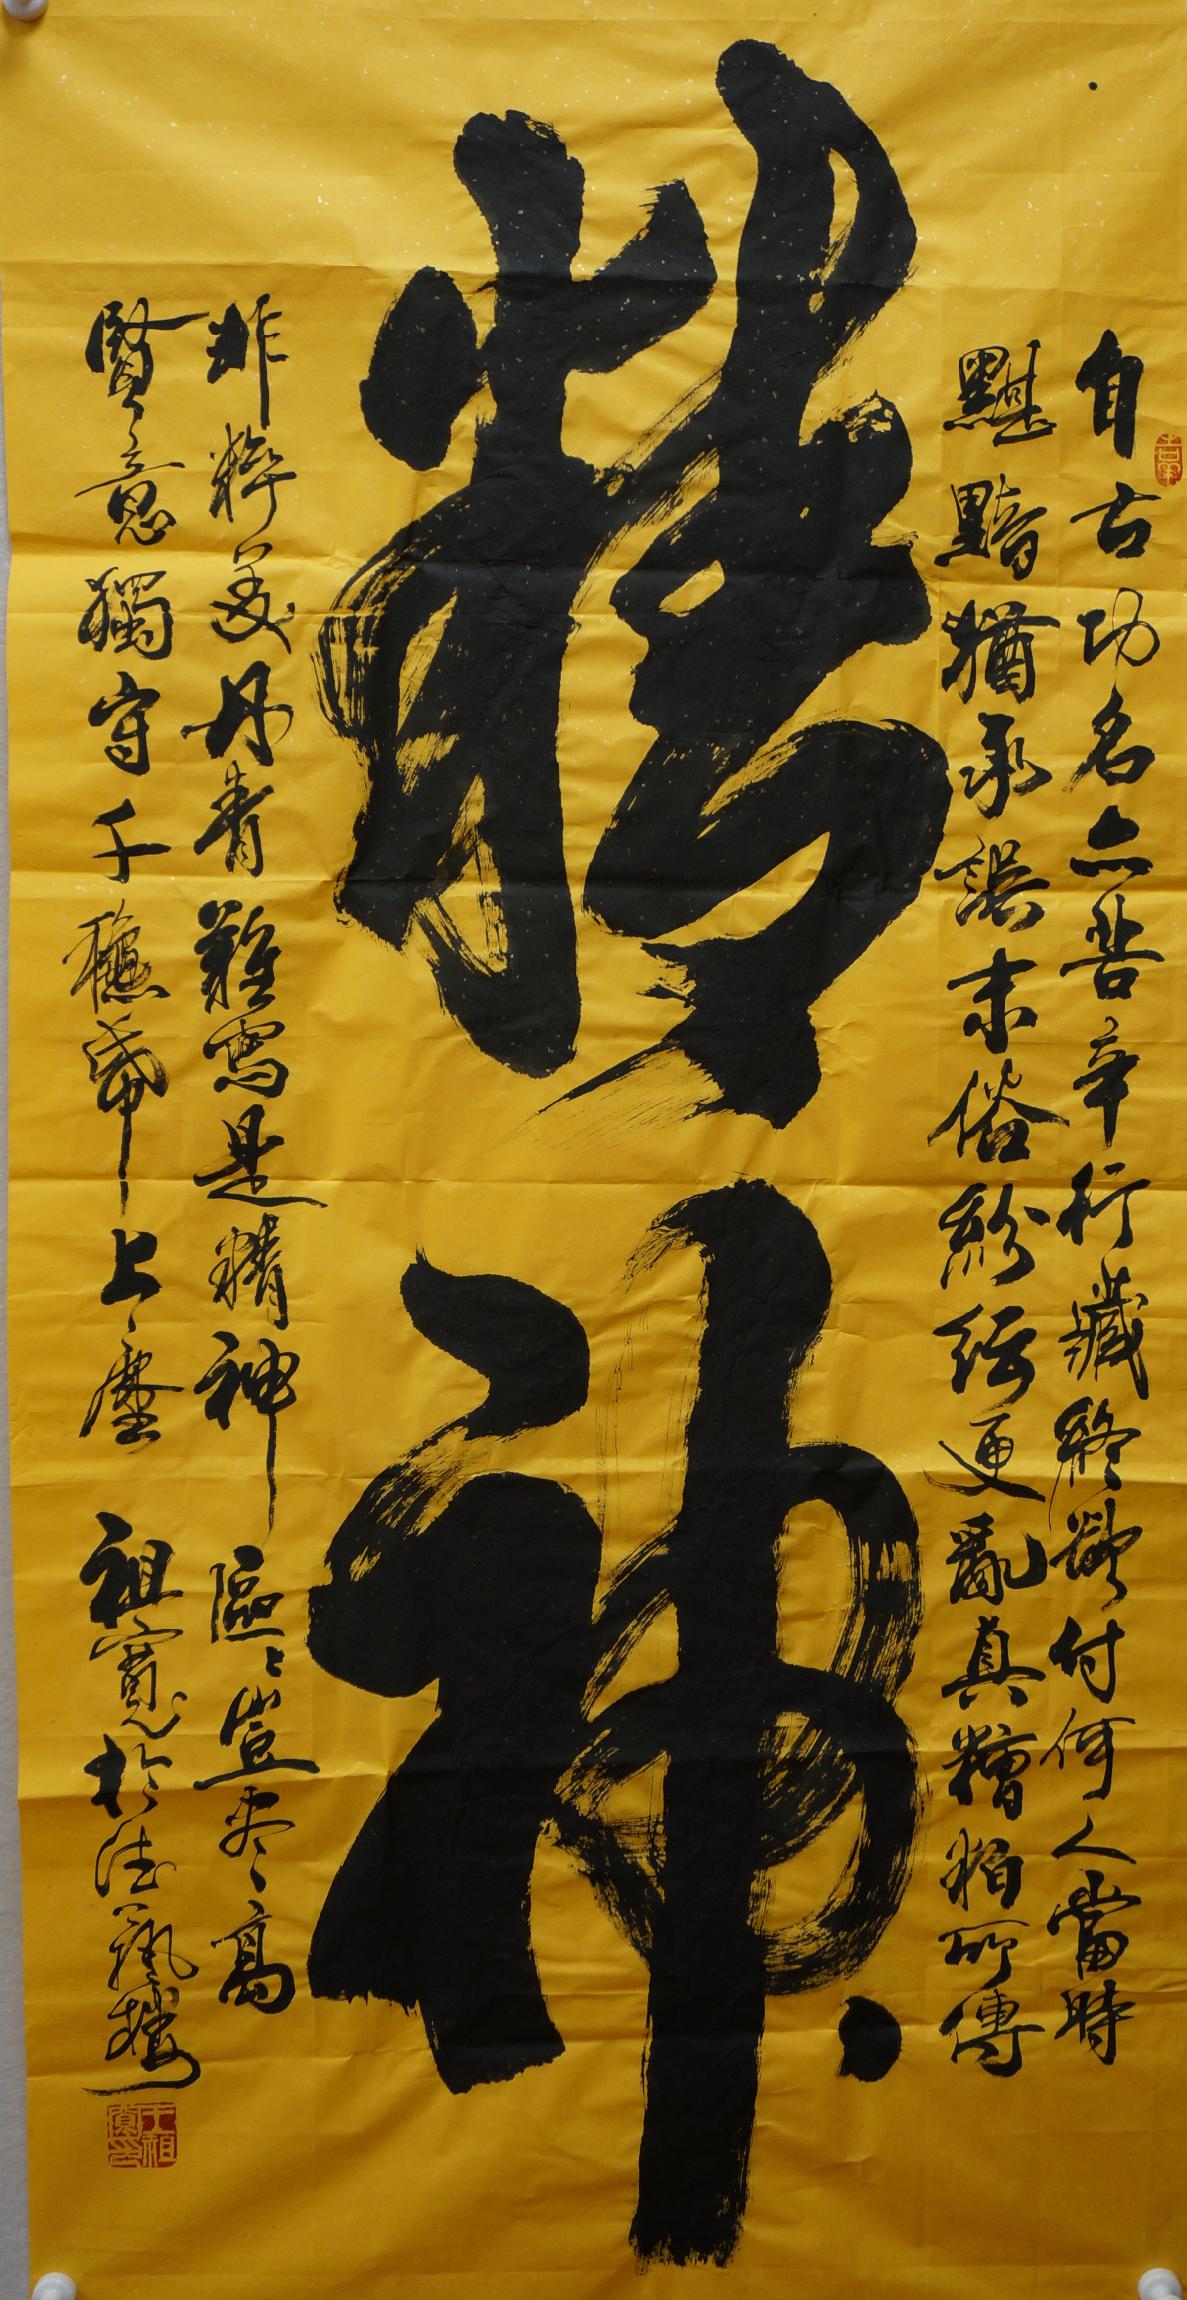 自古功名亦苦辛行藏終欲付何人當時
黮黯猶承誤末俗紛紜更亂真糟粕所傳
精神
非粹美丹青難寫是精神區〻豈盡高
賢意獨守千穐帋上塵 祖寬於